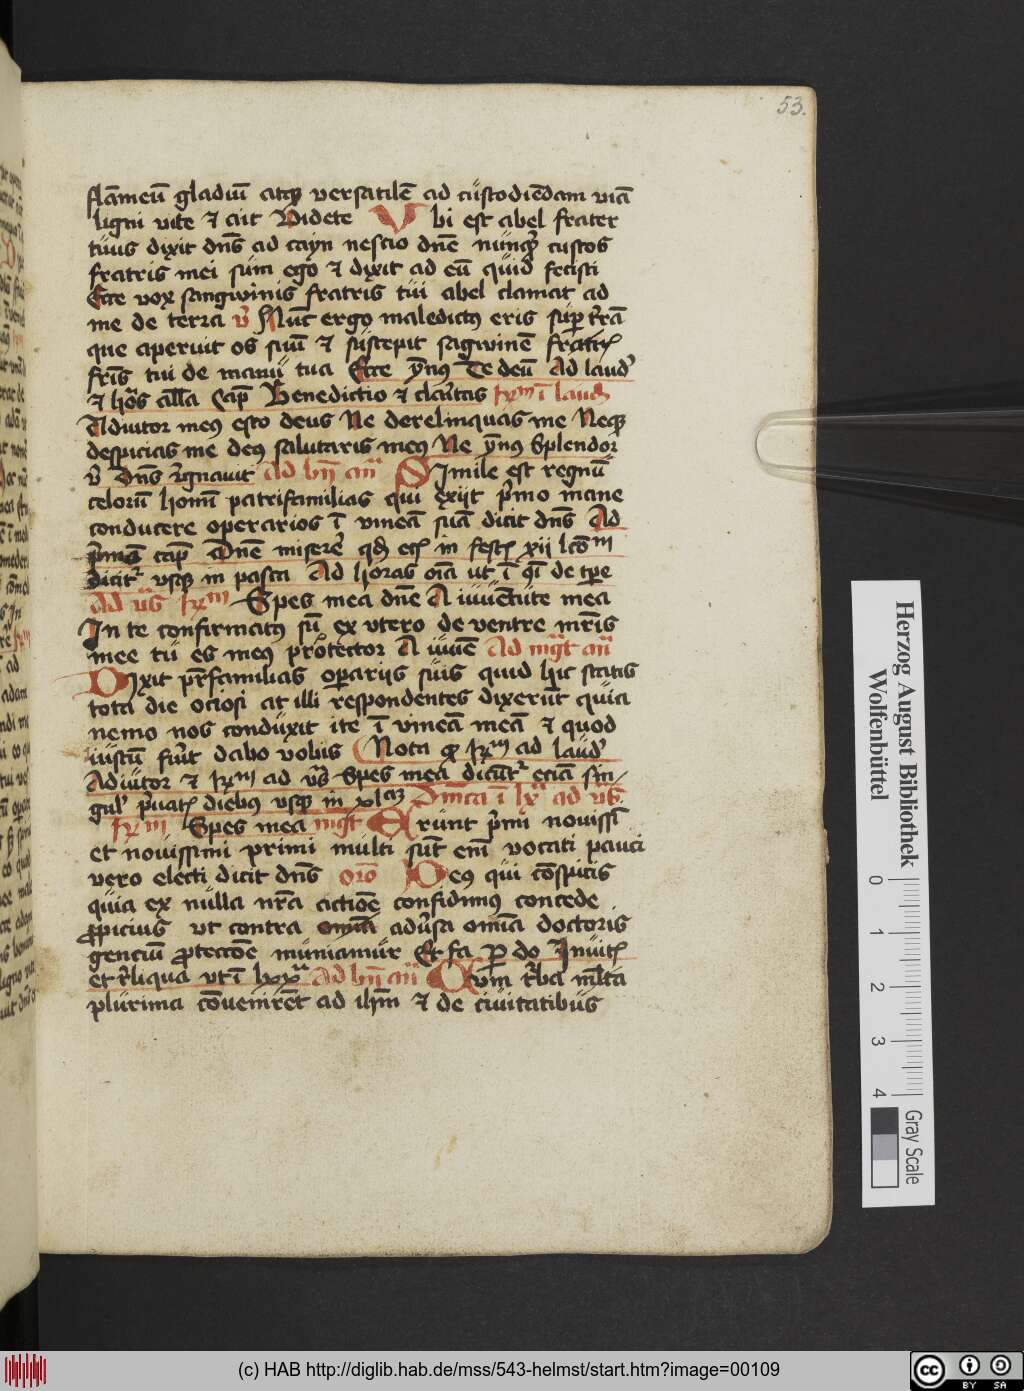 53.
flām̄eū gladiū atqꝫ versatilē ad custodiēdam viā
ligni vite ⁊ ait Videte Ubi est abel frater
tuus dixit dn̄s ad cayn nescio dn̄e nunqͥd custos
fratris mei sum ego ⁊ dixit ad eū quid fecisti
Ecce vox sangwinis fratris tui abel clamat ad
me de terra v̉ Nūc ergo maledictꝰ eris sup̱ t̄rā
que aperuit os suū ⁊ suscepit sagwinē
fr̄is tui de manu tua Ecce ym̄nꝰ Te deū Ad laud̉
⁊ hōs all̄a Cap̄ Benedictio ⁊ claritas ī laud̉
Adiutor meꝰ esto deus Ne derelinquas me Neqꝫ
despicias me deꝰ salutaris meꝰ Ne ym̄nꝰ Splendor
v̉ Dn̄s r̉gnauit Ad bn̄ an̄ Simile est regnū
celorū homī patrifamilias qui exiit p̉mo mane
conducere operarios ī vineā suā dicit dn̄s Ad
p̉mā cap̄ Dn̄e miserē in xii lcōm
dicit̉ vsqꝫ in pasca Ad horas oīa ut ī de tp̄e
Ad v̄s Spes mea dn̄e A iuuētute mea
In te confirmatꝰ sū ex vtero de ventre mr̄is
mee tu es meꝰ protector A iuuē Ad mgt̄ an̄
Dixit pr̄familias operariis suis quid hic statis
tota die ociosi at illi respondentes dixerūt quia
nemo nos conduxit ite ī vineā meā ⁊ quod
iustū fủit dabo vobis Nota ad laud̉
Adiutor ⁊ ad v̄s Spes mea dicūt̉ eciā sin
gul̉ p̉uatꝭ diebꝰ vsqꝫ in xlᵃᵐ Dn̄ica ī lxᵃ ad v̄s
Spes mea mgt̄ Erunt p̉mi novissī
et novissimi primi multi sūt em̄ vocati pauci
vero electi dicit dn̄s orō Deꝰ qui cōspicis
quia ex nulla nr̄a actiōe confidimꝰ concede
ꝓpicius vt contra omnia adủsa omīa doctoris
genciū ꝓtectōe muniamur Et fa p̄ do Inuitꝭ
et r̉liqua vt ī lxxᵃ Ad bn̄ an̄ Cum t̉ba ml̄ta
plurima cōuenirēt ad ihm̄ ⁊ de ciuitatibus
Herzog August Bibliothek
Wolfenbüttel
0 1 2 3 4
Gray Scale
(c) HAB http://diglib.hab.de/mss/543-helmst/start.htm?image=00109
cc
BY SA